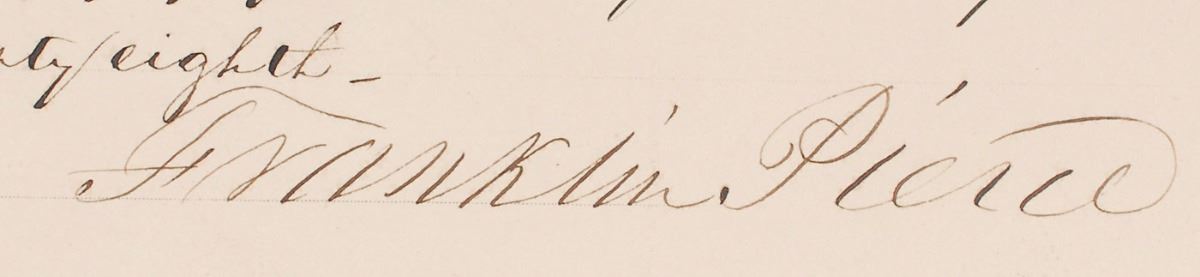 eighth -
Franklin Pierce